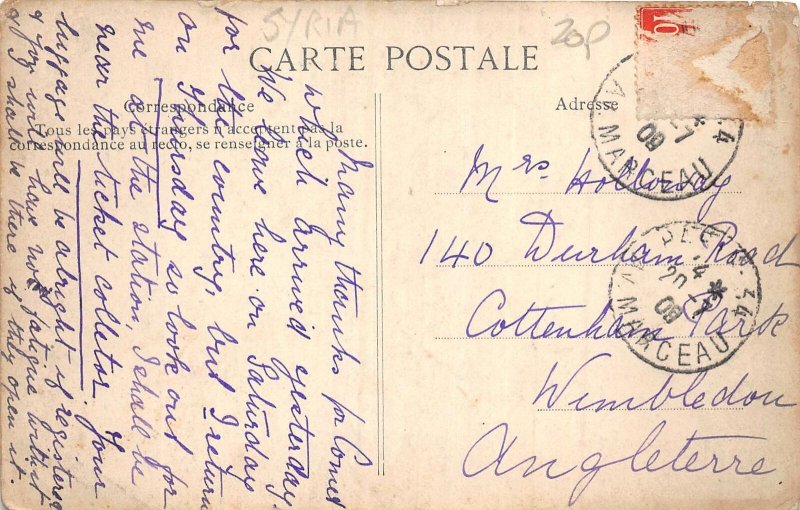 SYRIA
20p
CARTE POSTALE
Correspondance
Tous les pays étrangers n'acceptent pas la
correspondance au recto, se renseigner à la poste.
Adresse
Many thanks for Comet
which arrived yesterday.
We leave here on Saturday
for the country, but I return
on Thursday so look out for
me at the station, I shall be
near the ticket colletor. Your
luggage will be alright if registered
& you will have no fatigue with it
& I shall be there if they open it.
Mrs Holloway
140 Durham Road
Cottenham Park
Wimbledon
Angleterre
44
-7
09
MARCEAU
44
20 -7
09
MARCEAU
10